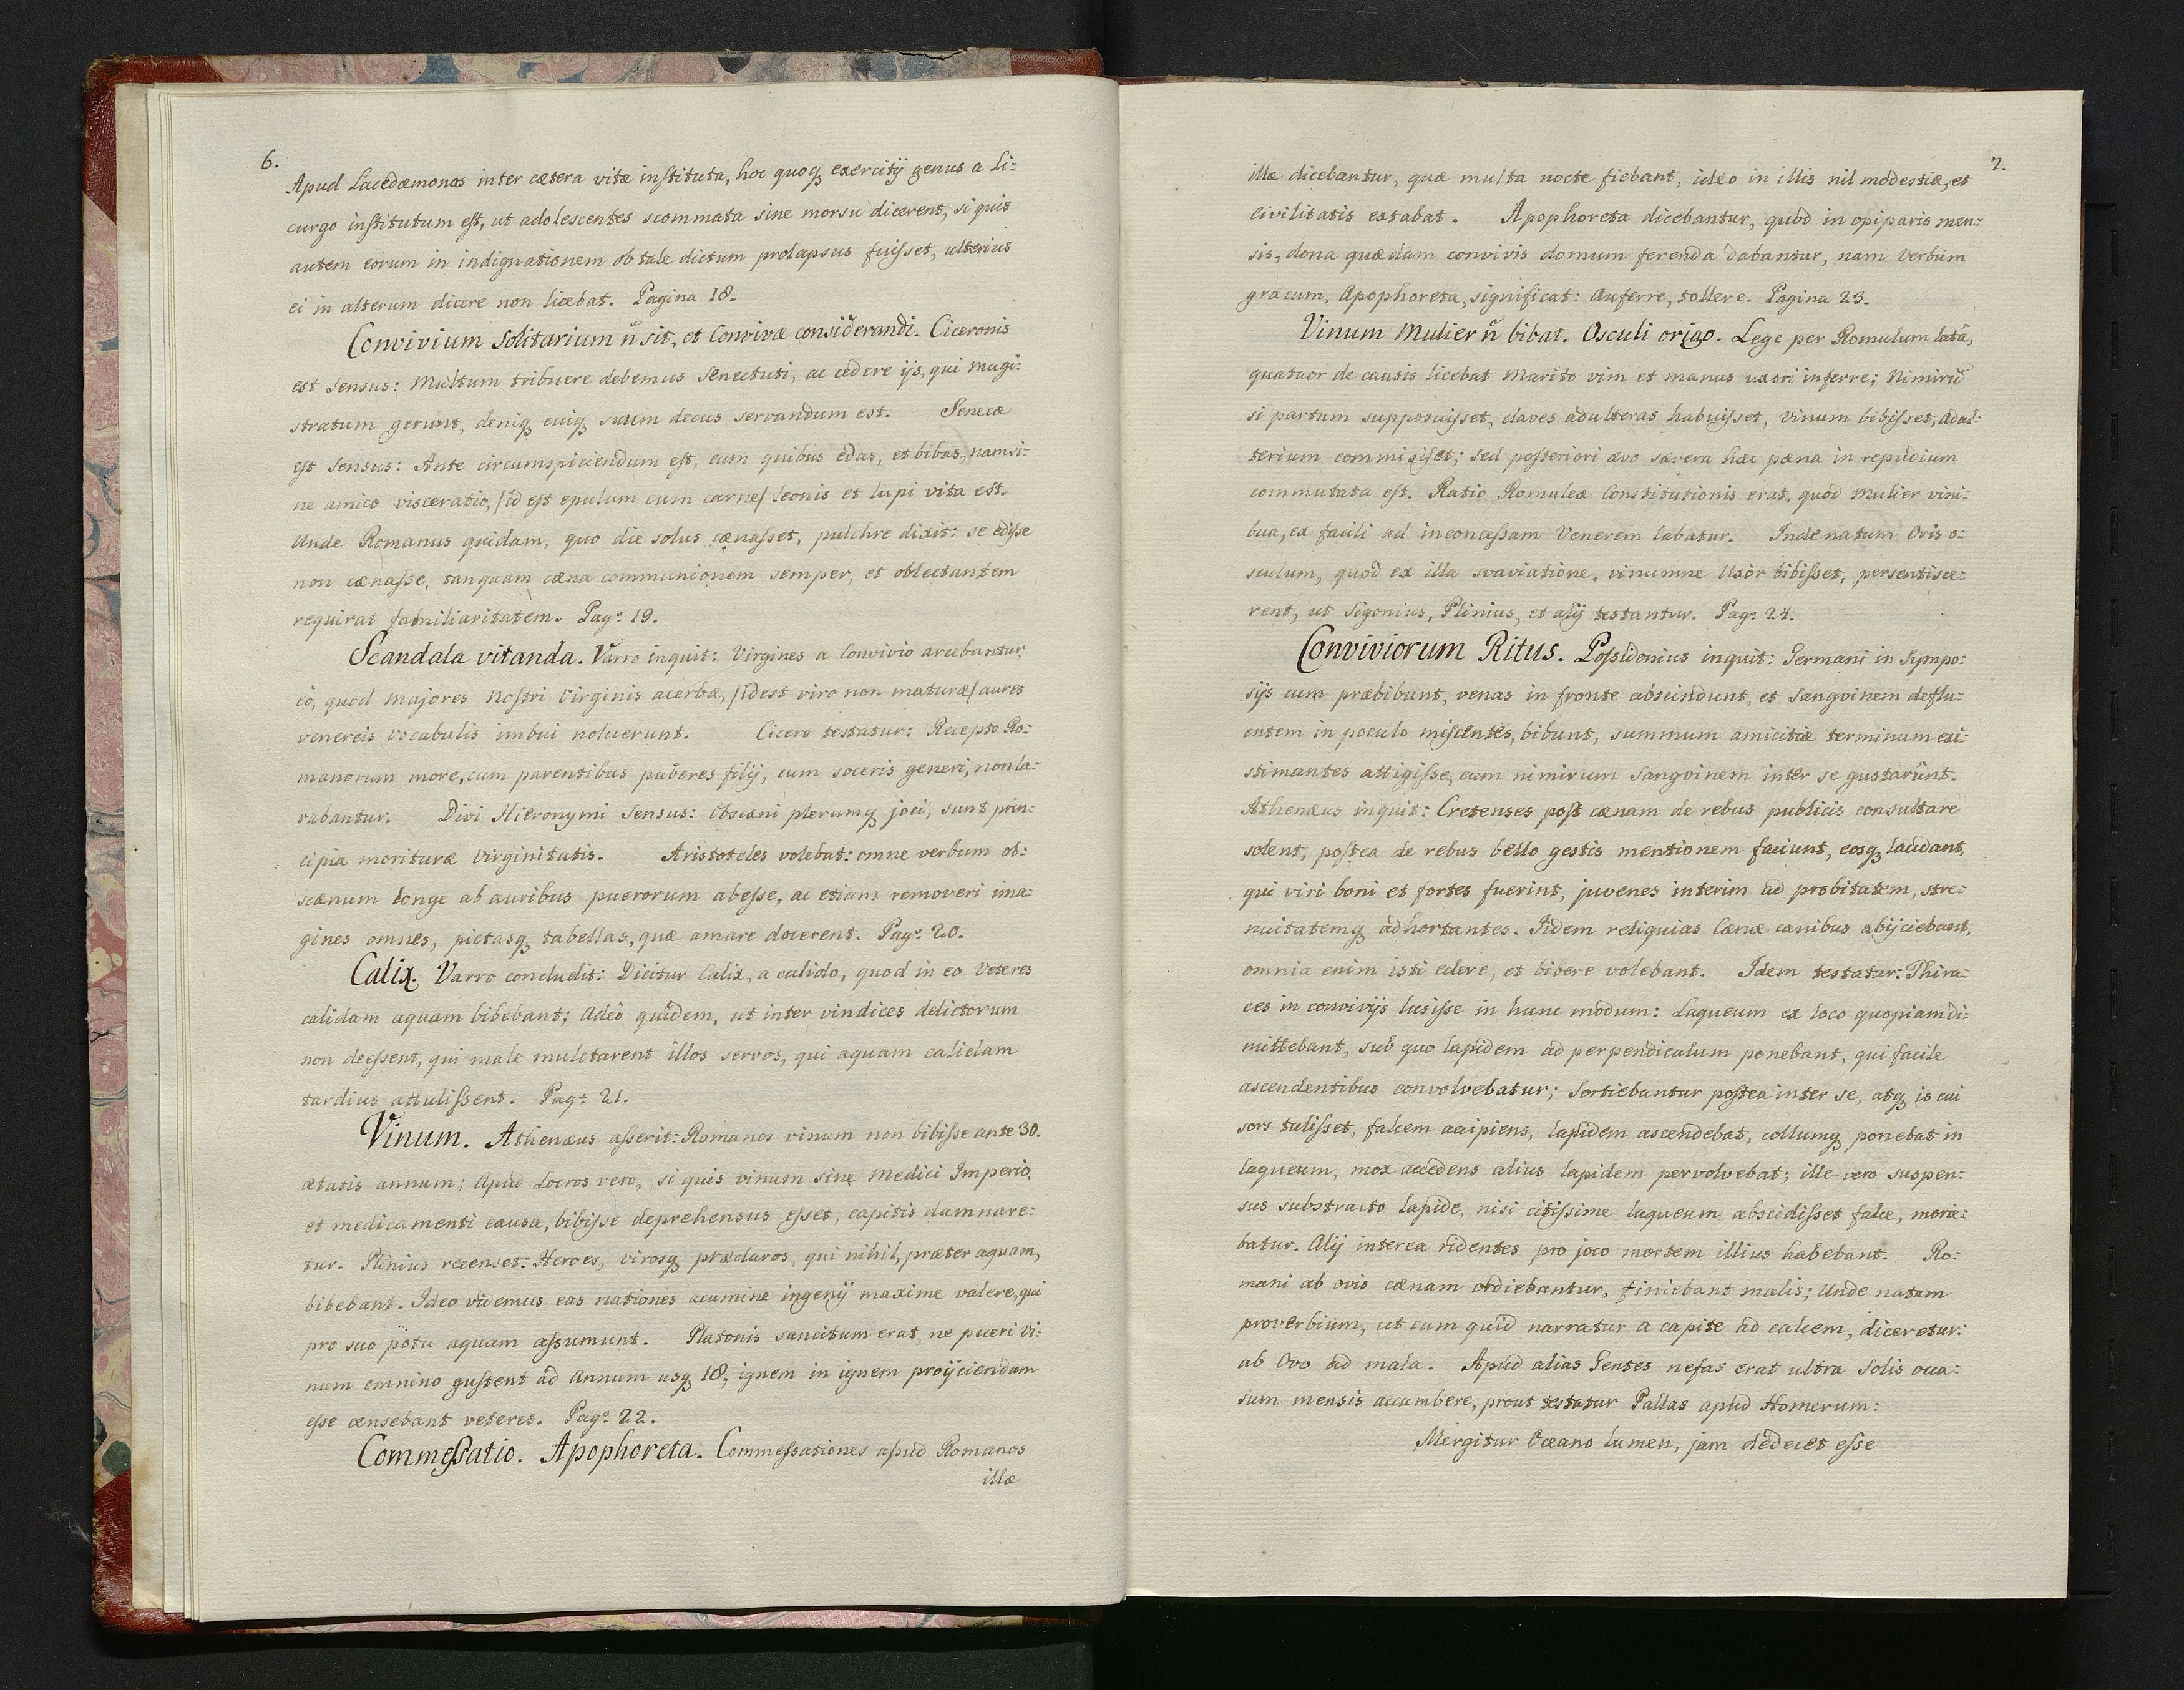 6.
Apud Lacedæmonas inter cætera vitæ instituta, hoc quoq exercitij genus a Li=
curgo institutum est, ut adolescentes scommata sine morsu dicerent, si quis
autem eorum in indignationem ob tale dictum prolapsus fuisset, ulterius
ei in alterum dicere non licebat. Pagina 18.
Convivium Solitarium n̄ sit, et Convivæ considerandi. Ciceronis
est Sensus: Multum tribuere debemus Senectuti, ac cedere ijs, qui Magi=
stratum gerunt, deniq cuiq suum decus servandum est. Senecæ
est Sensus: Ante circumspiciendum est, cum quibus edas, et bibas, nam si=
ne amico visceratio, /id est epulum cum carne/ leonis et lupi vita est.
Unde Romanus quidam, quo die solus cænasset, pulchre dixit: se edisse
non cænasse, tanquam cæna communionem semper, et oblectantem
requirat familiaritatem. Pag: 19.
Scandala vitanda. Varro inquit: Virgines a Convivio arcebantur
eò, quod Majores Nostri Virginis acerbæ, /idest viro non maturæ/ aures
venereis vocabulis imbui noluerunt. Cicero testatur: Recepto Ro=
manorum more, cum parentibus puberes filij, cum soceris generi, non la=
vabantur. Divi Hieronymi Sensus: Obscæni plerumq joci, sunt prin=
cipia morituræ Virginitatis. Aristoteles volebat: omne verbum ob=
scænum longe ab auribus puerorum abesse, ac etiam removeri ima=
gines omnes, pictasq tabellas, quæ amare docerent. Pag: 20.
Calix. Varro concludit: Dicitur Calix, a calido, quod in eo Veteres
calidam aquam bibebant; Adeò quidem, ut inter vindices delictorum
non deessent, qui male mulctarent illos servos, qui aquam calidam
tardius attulissent. Pag: 21.
Vinum. Athenæus asserit: Romanos vinum non bibisse ante 30.
ætatis annum; Apud Locros vero, si quis vinum sine Medici Imperio,
et medicamenti causa, bibisse deprehensus esset, capitis damnare=
tur. Plinius recenset: Heroes, virosq præclaros, qui nihil, præter aquam,
bibebant. Ideo videmus eas nationes acumine ingenij maxime valere, qui
pro suo potu aquam assumunt. Platonis sancitum erat, ne pueri vi=
num omnino gustent ad Annum usq 18, ignem in ignem proijciendam
esse censebant veteres. Pag: 22.
Commessatio. Apophoreta. Commessationes apud Romanos
illæ
7.
illæ dicebantur, quæ multa nocte fiebant, ideo in illis nil modestiæ, et
civilitatis extabat. Apophoreta dicebantur, quod in opiparis men=
sis, dona quædam convivis domum ferenda dabantur, nam Verbum
græcum, Apophoreta, significat: Auferre, tollere. Pagina 23.
Vinum Mulier n̄ bibat. Osculi origo. Lege per Romulum latâ,
quatuor de causis licebat Marito vim et manus uxori inferre; Nimirū
si partum supposuisset, claves adulteras habuisset, Vinum bibisset, Adul=
terium commisisset; sed posteriori ævo sævera hæc pæna in repudium
commutata est. Ratio Romuleæ Constitutionis erat, quod Mulier vini=
bua, ex facili ad inconcessam Venerem labatur. Inde natum Oris o=
sculum, quod ex illa svaviatione, vinumne Uxor bibisset, persentisce=
rent, ut Sigonius, Plinius, et alij testantur. Pag: 24.
Conviviorum Ritus. Possidonius inquit: Germani in Sympo=
sijs cum præbibunt, venas in fronte abscindunt, et Sangvinem deflu=
entem in poculo miscentes, bibunt, summum amicitiæ terminum exi=
stimantes attigisse, cum nimirum Sangvinem inter se gustarunt.
Athenæus inquit: Cretenses post cænam de rebus publicis consultare
solent, postea de rebus bello gestis mentionem faciunt, eosq laudant,
qui viri boni et fortes fuerint, juvenes interim ad probitatem, stre=
nuitatemq adhortantes. Iidem reliquias Cænæ canibus abijciebant,
omnia enim isti edere, et bibere volebant. Idem testatur: Thra=
ces in convivijs lusisse in hunc modum: Laqueum ex loco quopiam di=
mittebant, sub quo lapidem ad perpendiculum ponebant, qui facile
ascendentibus convolvebatur; Sortiebantur postea inter se, atq is cui
sors tulisset, falcem accipiens, lapidem ascendebat, collumq ponebat in
laqueum, mox accedens alius lapidem pervolvebat; ille vero suspen=
sus substracto lapide, nisi citissime laqueum abscidisset falce, morie=
batur. Alij interea ridentes pro joco mortem illius habebant. Ro=
mani ab ovis cænam ordiebantur, finiebant malis; Unde natum
proverbium, ut cum quid narratur a capite ad calcem, diceretur:
ab Ovo ad mala. Apud alias Gentes nefas erat ultra Solis occa=
sum mensis accumbere, prout testatur Pallas apud Homerum:
Mergitur Oceano lumen, jam dedecet esse